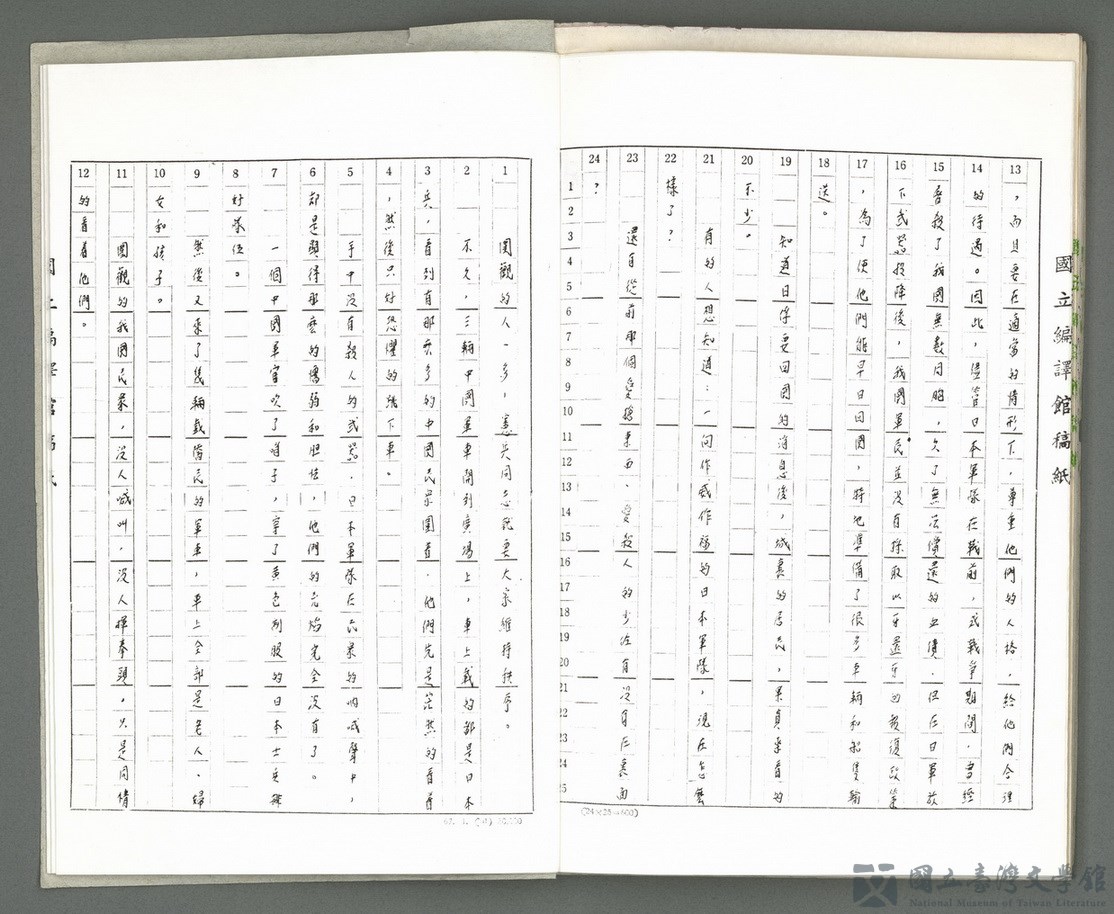 國立編譯館稿紙
，而且要在適當的情形下，尊重他們的人格，給他們合理
的待遇。因此，儘管日本軍隊在戰前，或戰爭期間，曾經
吞殺了我國無數同胞，欠了無法償還的血債，但在日軍放
下武器投降後，我國軍民並沒有採取以牙還牙的報復政策
，為了使他們能早日回國，特地準備了很多車輛和船隻輸
送。
知道日俘要回國的消息後，城裏的居民，果真來看的
不少。
有的人想知道：一向作威作福的日本軍隊，現在怎麼
樣了？
還有從前那個愛搶東西，愛殺人的少佐有沒有在裏面
？
圍觀的人一多，憲兵同志就要大家維持秩序。
不久，三輛中國軍車開到廣場上，車上載的都是日本
兵，看到有那麼多的中國民眾圍着，他們先是茫然的看着
，然後只好恐懼的爬下車。
手中沒有殺人的武器，日本軍隊在民眾的吶喊聲中，
都是顯得那麼的懦弱和胆怯，他們的氣焰完全沒有了。
一個中國軍官吹了哨子，穿了黃色制服的日本士兵排
好隊伍。
然後又來了幾輛載僑民的軍車，車上全部是老人、婦
女和孩子。
圍觀的我國民眾，沒人喊叫，沒人揮拳頭，只是同情
的看着他們。
國立臺灣文學館
National Museum of Taiwan Literature